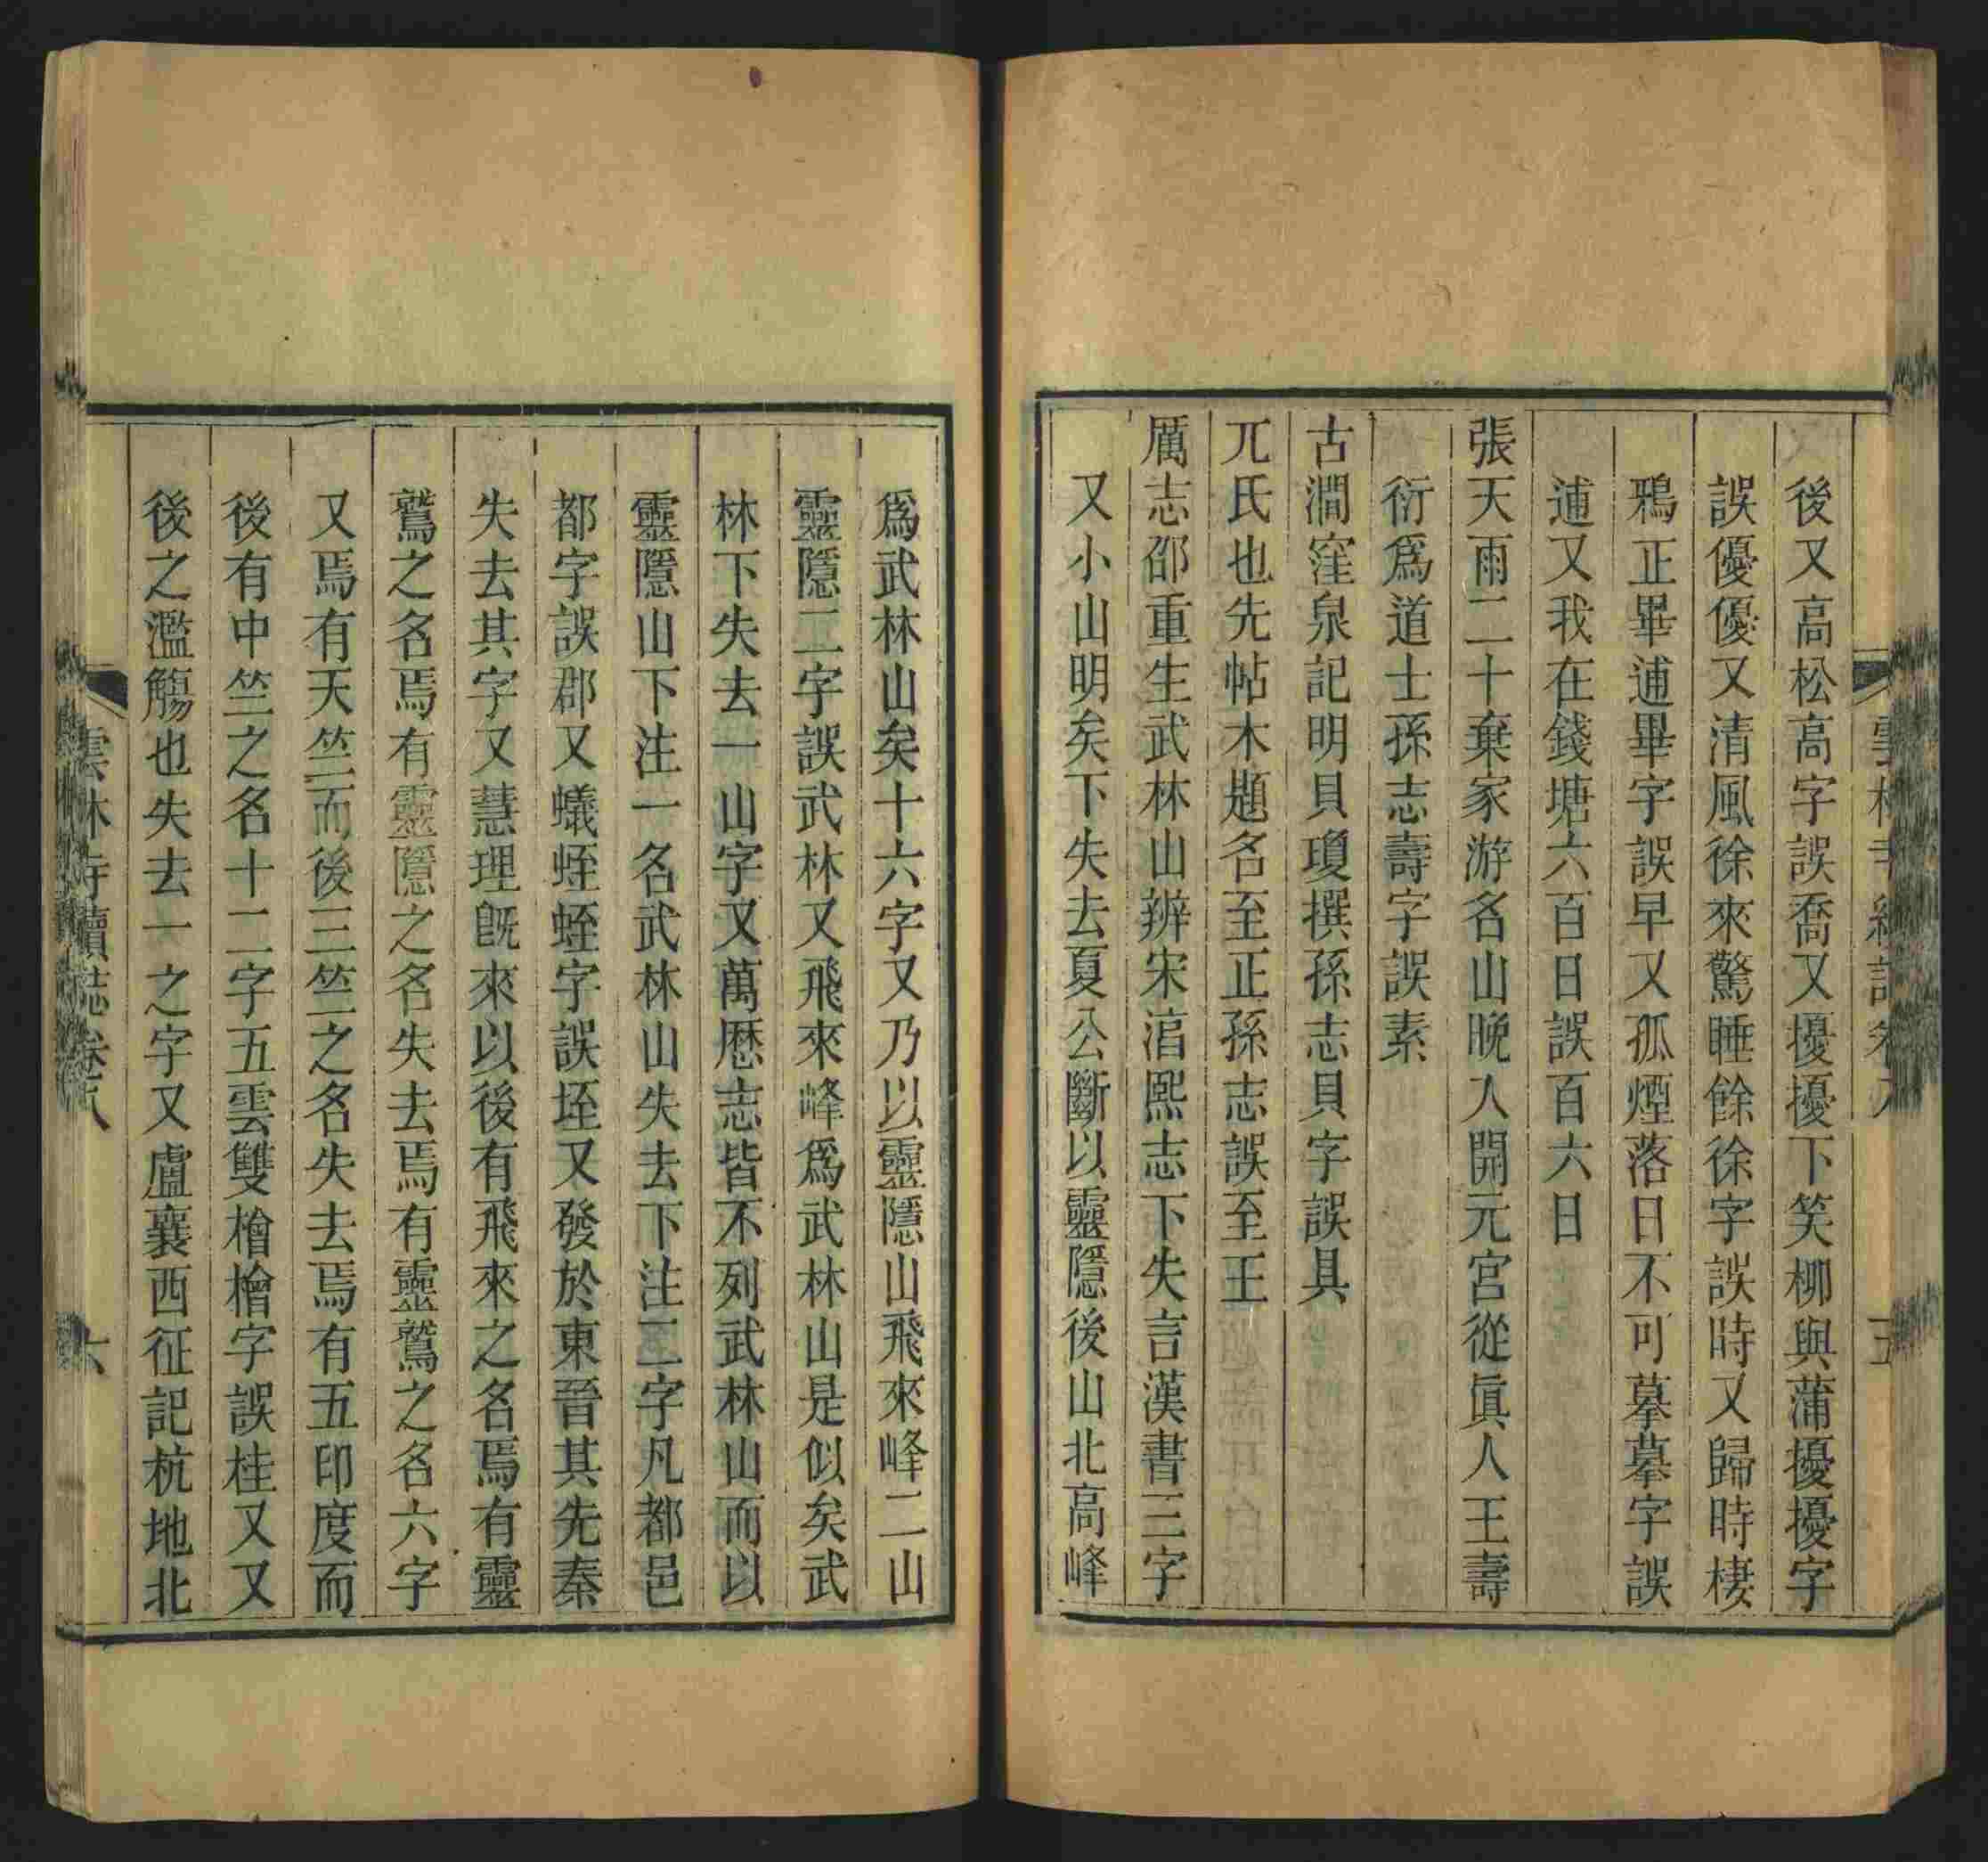 後又高松高字誤喬又擾擾下笑柳與蒲擾擾字
誤優優又清風徐來驚睡餘徐字誤時又歸時棲
鴉正畢逋畢字誤早又孤煙落日不可摹摹字誤
逋又我在錢塘六百日誤百六日
張天雨二十棄家游名山晚入開元宮從眞人王壽
衍爲道士孫志壽字誤素
古澗窪泉記明貝瓊撰孫志貝字誤具
兀氏也先帖木題名至正孫志誤至王
厲志邵重生武林山辨宋湻熙志下失言漢書三字
又小山明矣下失去夏公斷以靈隱後山北高峰
爲武林山矣十六字又乃以靈隱山飛來峰二山
靈隱二字誤武林又飛來峰爲武林山是似矣武
林下失去一山字又萬厯志皆不列武林山而以
靈隱山下注一名武林山失去下注二字凡都邑
都字誤郡又蟻蛭蛭字誤垤又發於東晉其先秦
失去其字又慧理旣來以後有飛來之名焉有靈
鷲之名焉有靈隱之名失去焉有靈鷲之名六字
又焉有天竺而後三竺之名失去焉有五印度而
後有中竺之名十二字五雲雙檜檜字誤桂又又
後之濫觴也失去一之字又盧襄西征記杭地北
雲林寺續誌卷八
六